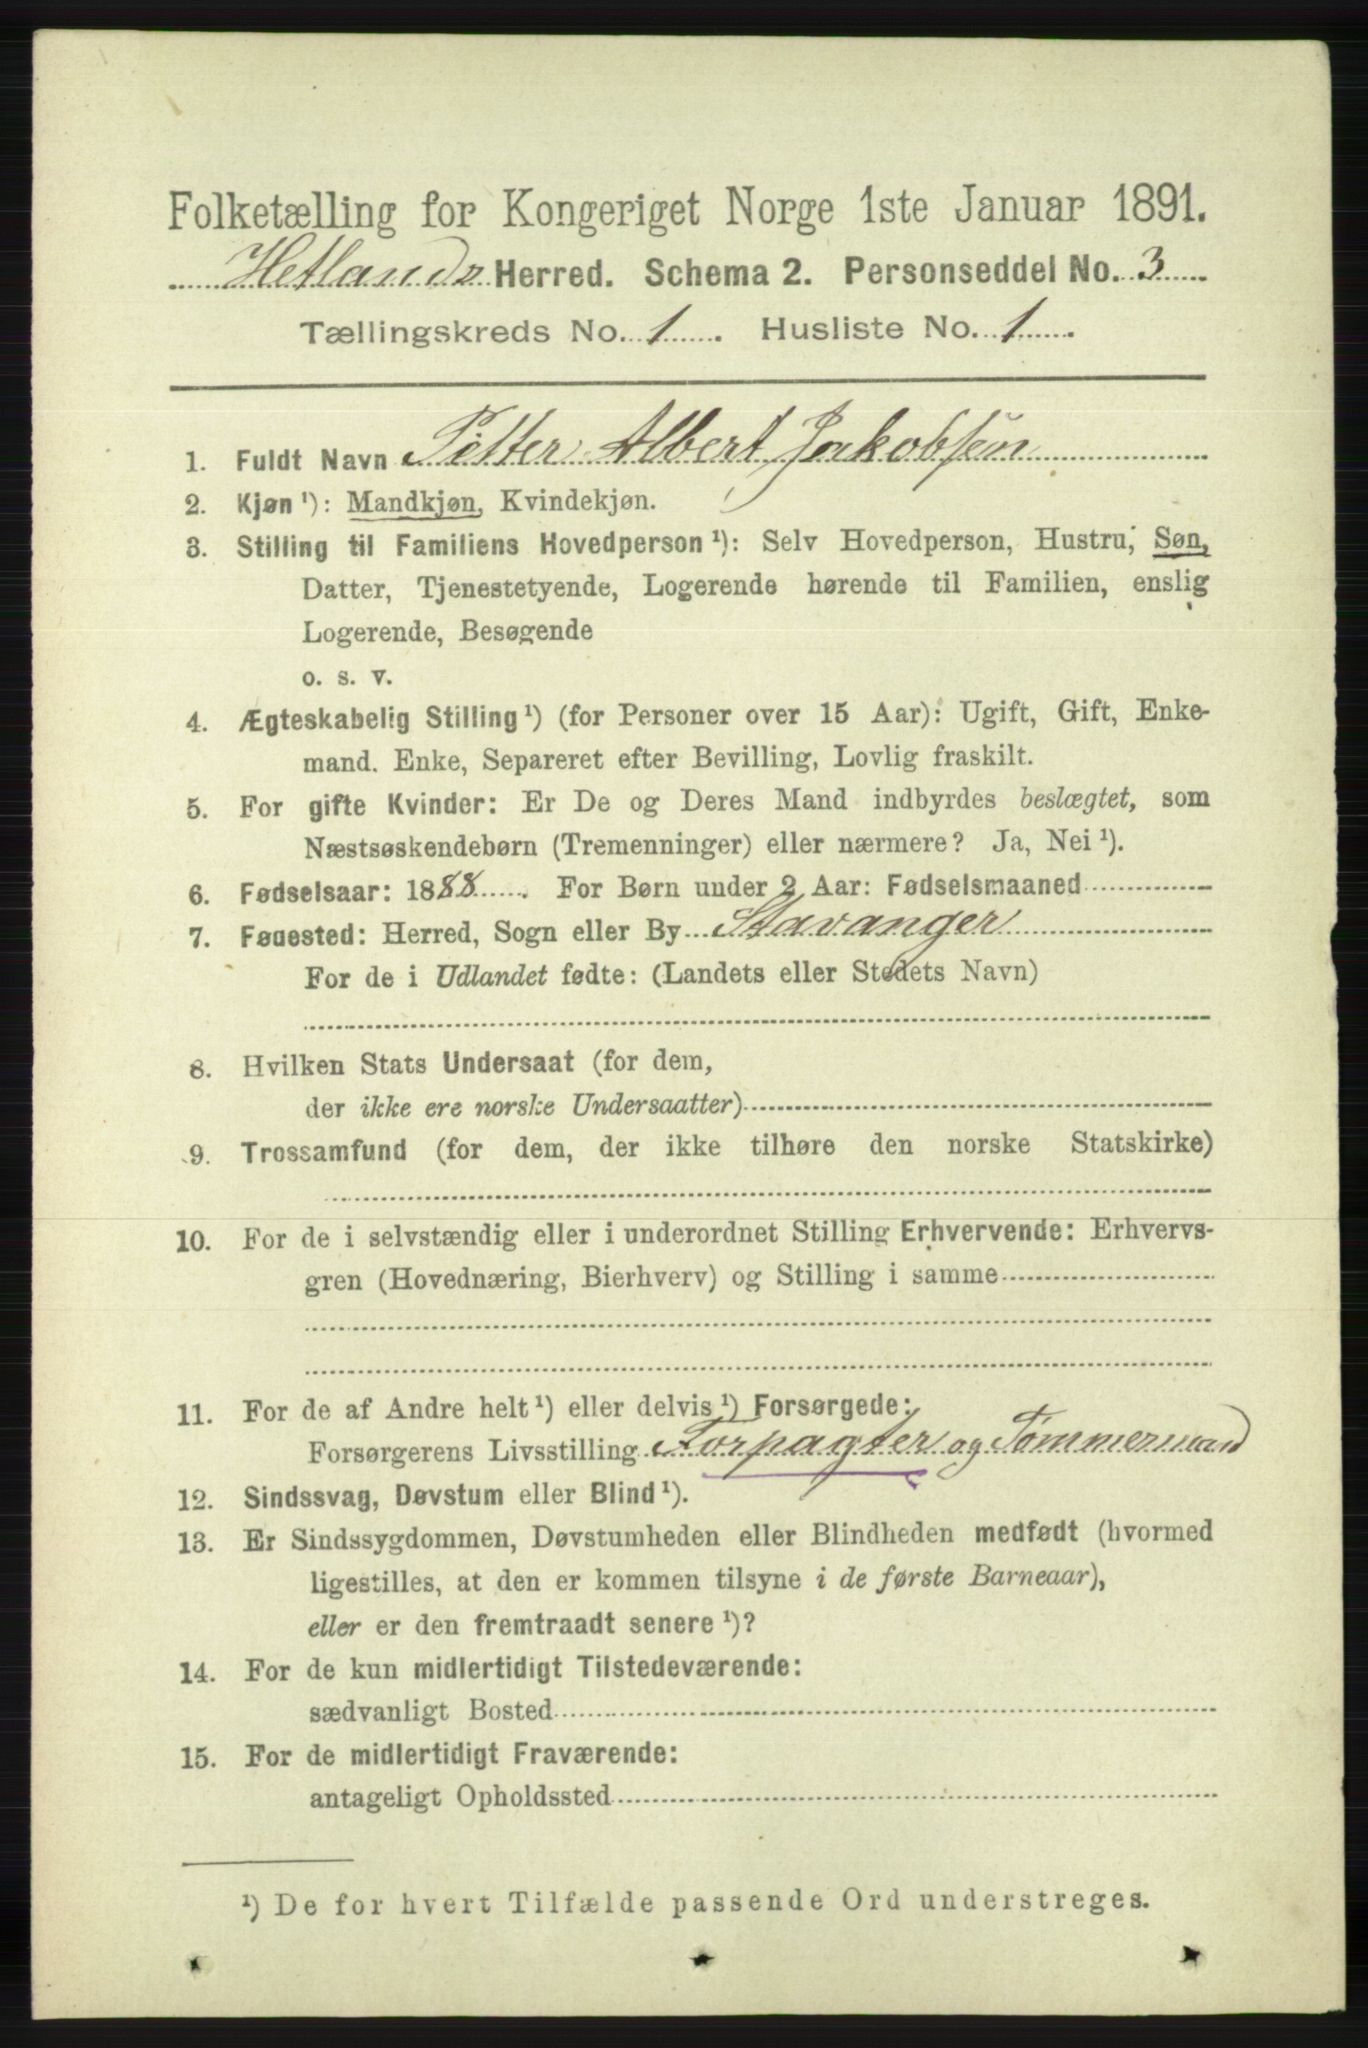 Folketælling for Kongeriget Norge 1ste Januar 1891.
Hetlands Herred. Schema 2. Personseddel No. 3
Tællingskreds No. 1. Husliste No. 1.
1. Fuldt Navn Petter Albert Jakobsen
2. Kjøn¹): Mandkjøn, Kvindekjøn.
3. Stilling til Familiens Hovedperson¹): Selv Hovedperson, Hustru, Søn,
Datter, Tjenestetyende, Logerende hørende til Familien, enslig
Logerende, Besøgende
o. s. v.
4. Ægteskabelig Stilling¹) (for Personer over 15 Aar): Ugift, Gift, Enke-
mand. Enke, Separeret efter Bevilling, Lovlig fraskilt.
5. For gifte Kvinder: Er De og Deres Mand indbyrdes beslægtet, som
Næstsøskendebørn (Tremenninger) eller nærmere? Ja, Nei¹).
6. Fødselsaar: 1888. For Børn under 2 Aar: Fødselsmaaned
7. Føuested: Herred, Sogn eller By Stavanger
For de i Udlandet fødte: (Landets eller Stedets Navn)
8. Hvilken Stats Undersaat (for dem,
der ikke ere norske Undersaatter)
9. Trossamfund (for dem, der ikke tilhøre den norske Statskirke)
10. For de i selvstændig eller i underordnet Stilling Erhvervende: Erhvervs-
gren (Hovednæring, Bierhverv) og Stilling i samme
11. For de af Andre helt¹) eller delvis¹) Forsørgede:
Forsørgerens Livsstilling Forpagter og Tømmermand
12. Sindssvag, Døvstum eller Blind¹).
13. Er Sindssygdommen, Døvstumheden eller Blindheden medfødt (hvormed
ligestilles, at den er kommen tilsyne i de første Barneaar),
eller er den fremtraadt senere¹)?
14. For de kun midlertidigt Tilstedeværende:
sædvanligt Bosted
15. For de midlertidigt Fraværende:
antageligt Opholdssted
¹) De for hvert Tilfælde passende Ord understreges.